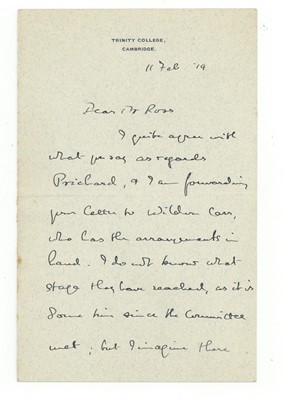 TRINITY COLLEGE,
CAMBRIDGE.
11 Feb '19
Dear Mr Ross
I quite agree with
what you say as regards
Prichard, & I am forwarding
your letter to Wildon Carr,
who has the arrangements in
hand. I do not know what
stage they have reached, as it is
some time since the Committee
met; but I imagine there